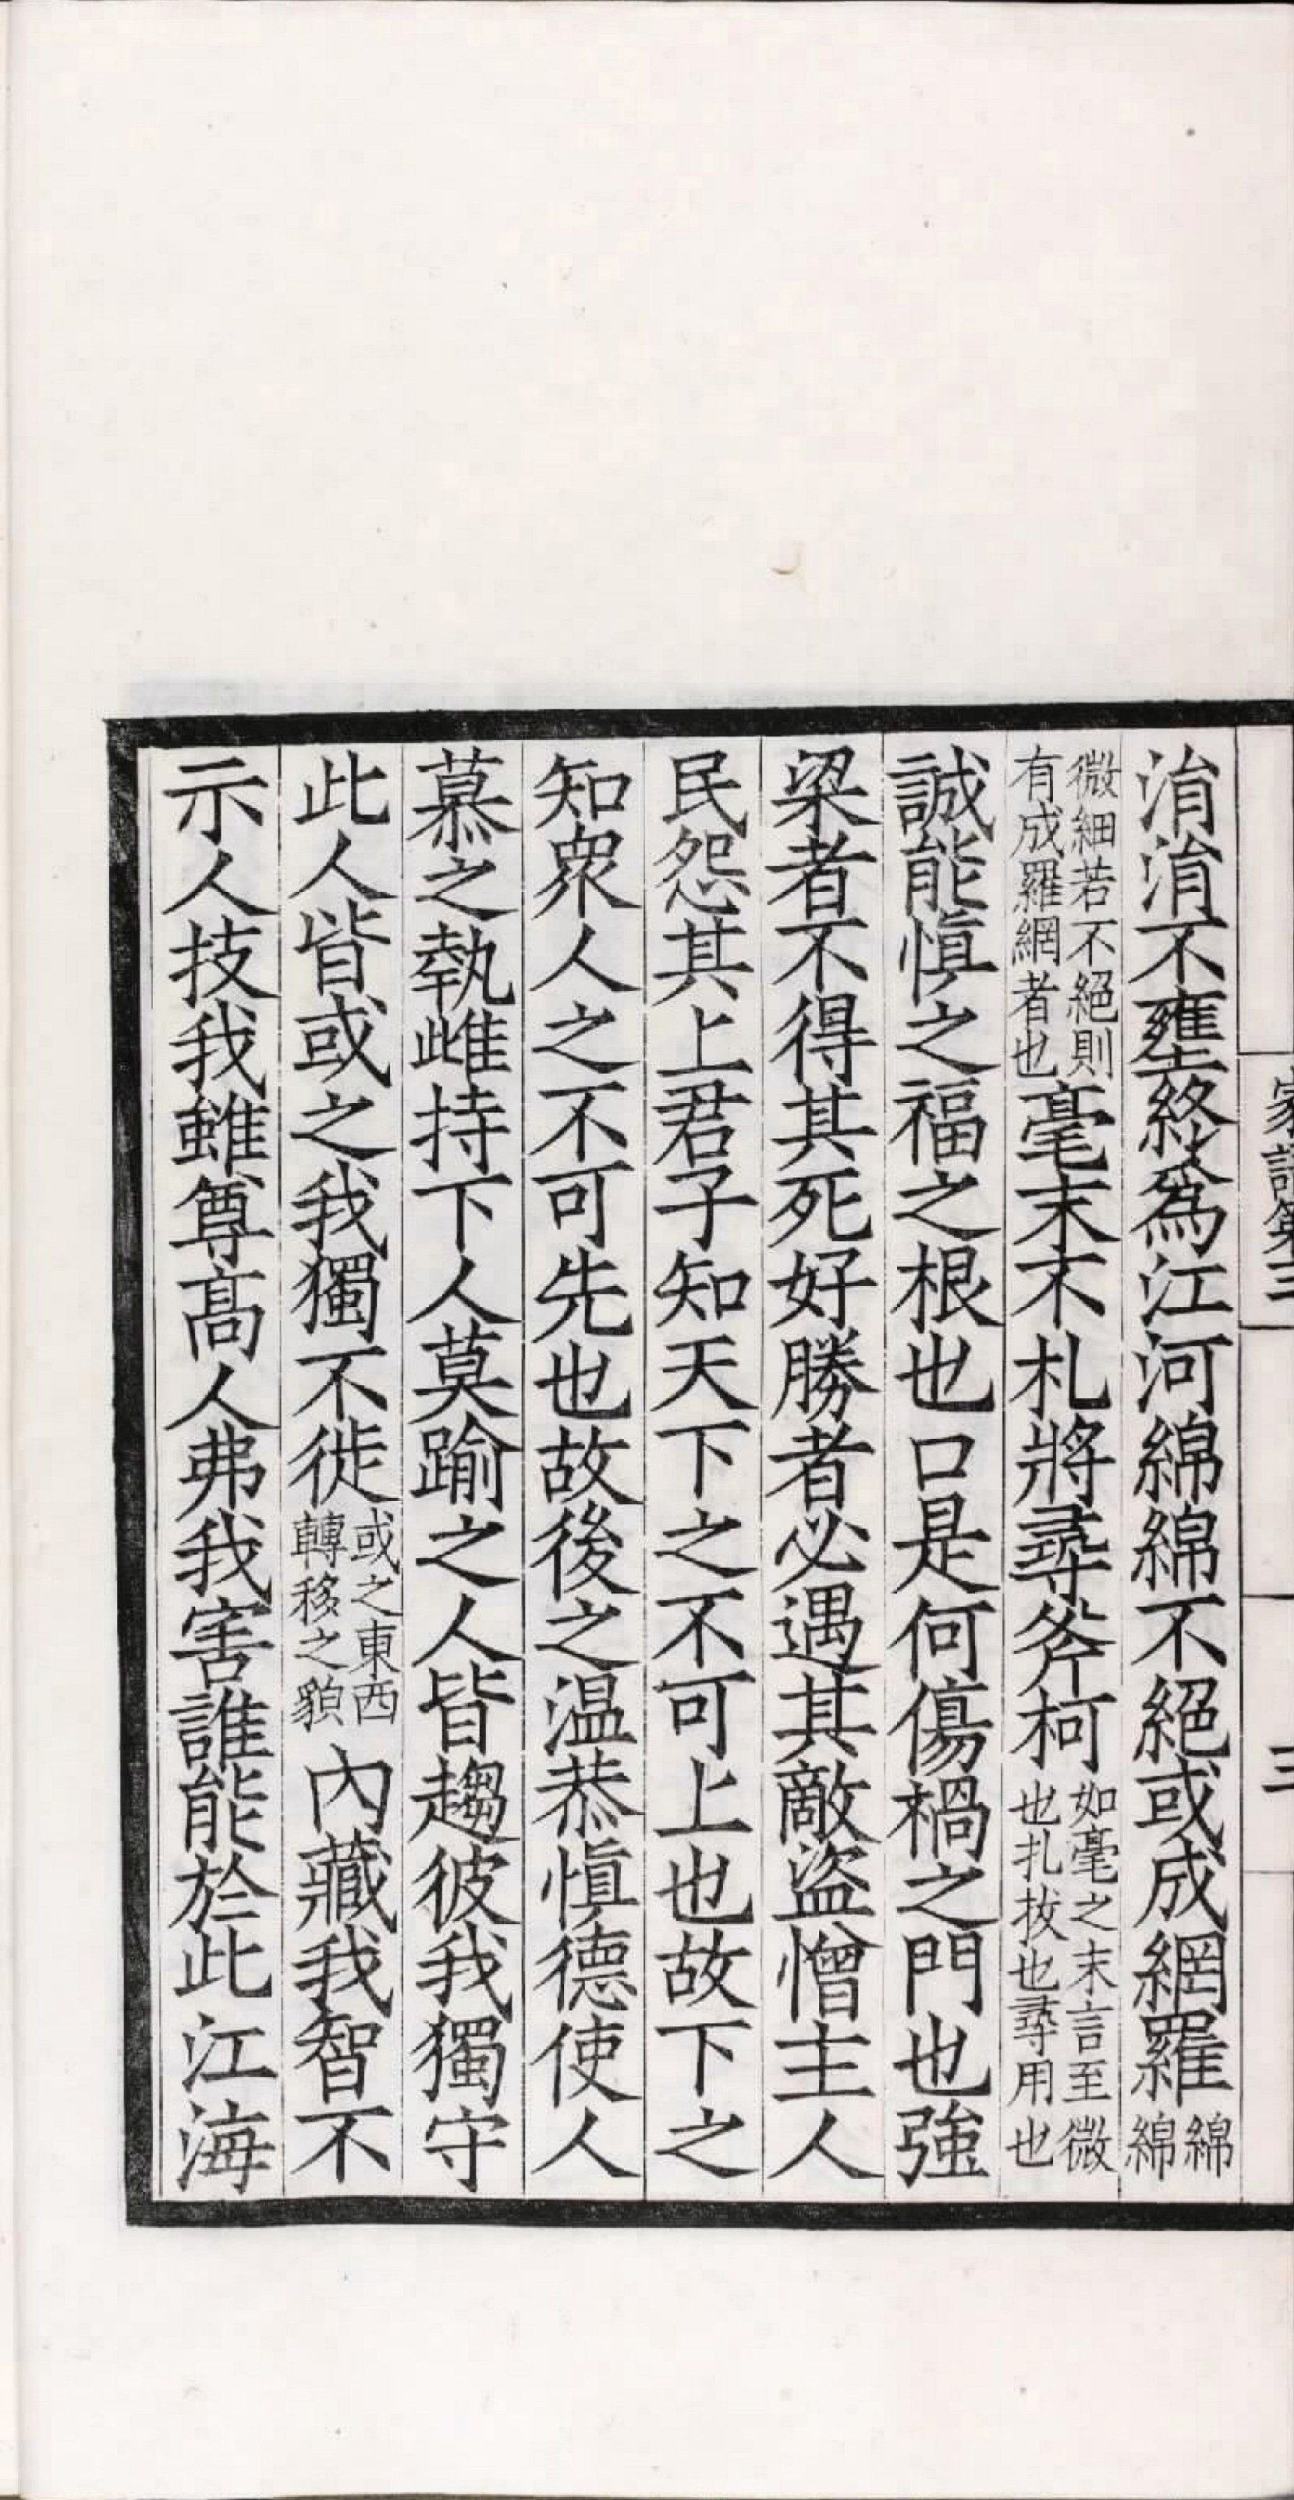 家語第三
三
涓涓不壅終爲江河綿綿不絕或成網羅綿綿
微細若不絕則有成羅網者也毫末不札將尋斧柯如毫之末言至微也扎拔也尋用也
誠能慎之福之根也口是何傷禍之門也強
梁者不得其死好勝者必遇其敵盜憎主人
民怨其上君子知天下之不可上也故下之
知衆人之不可先也故後之温恭慎德使人
慕之執雌持下人莫踰之人皆趨彼我獨守
此人皆或之我獨不徙或之東西轉移之貌內藏我智不
示人技我雖尊高人弗我害誰能於此江海